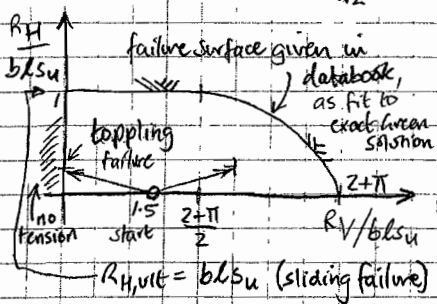 R_H
bls_u
failure surface given in
databook,
as fit to
exact Green
solution
1
toppling
failure
no
tension
1.5
start
2+π
2
2+π
R_V/bls_u
R_H,ult = bls_u (sliding failure)